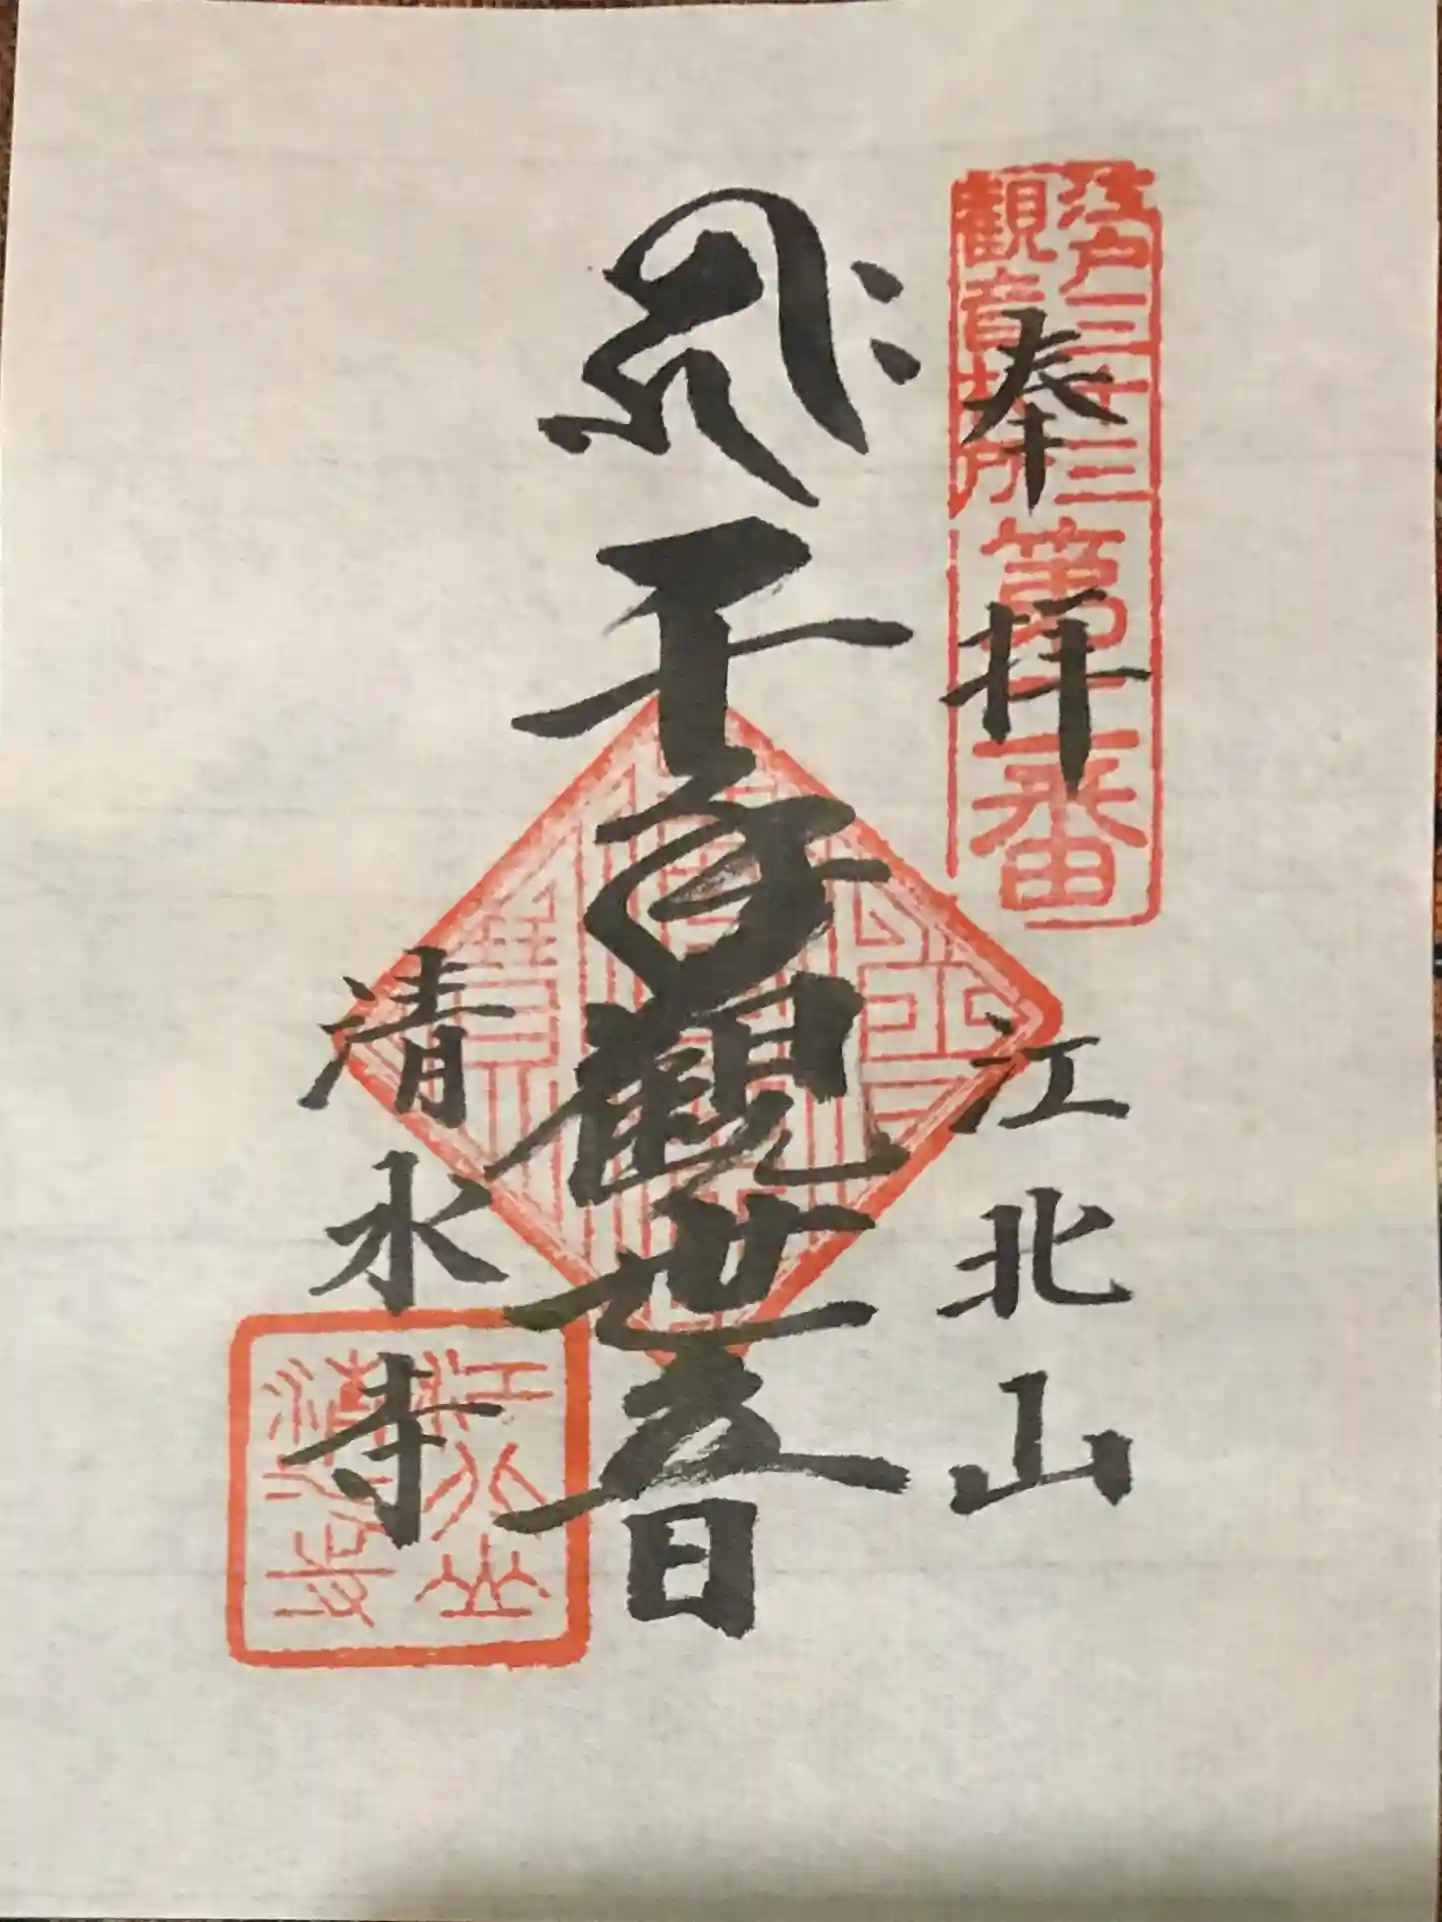 奉拝
江北山
𑖮𑖿𑖨𑖱𑖾
千手觀世音
清水寺
江戸三十三
観音札所
第二番
江北山
清水寺